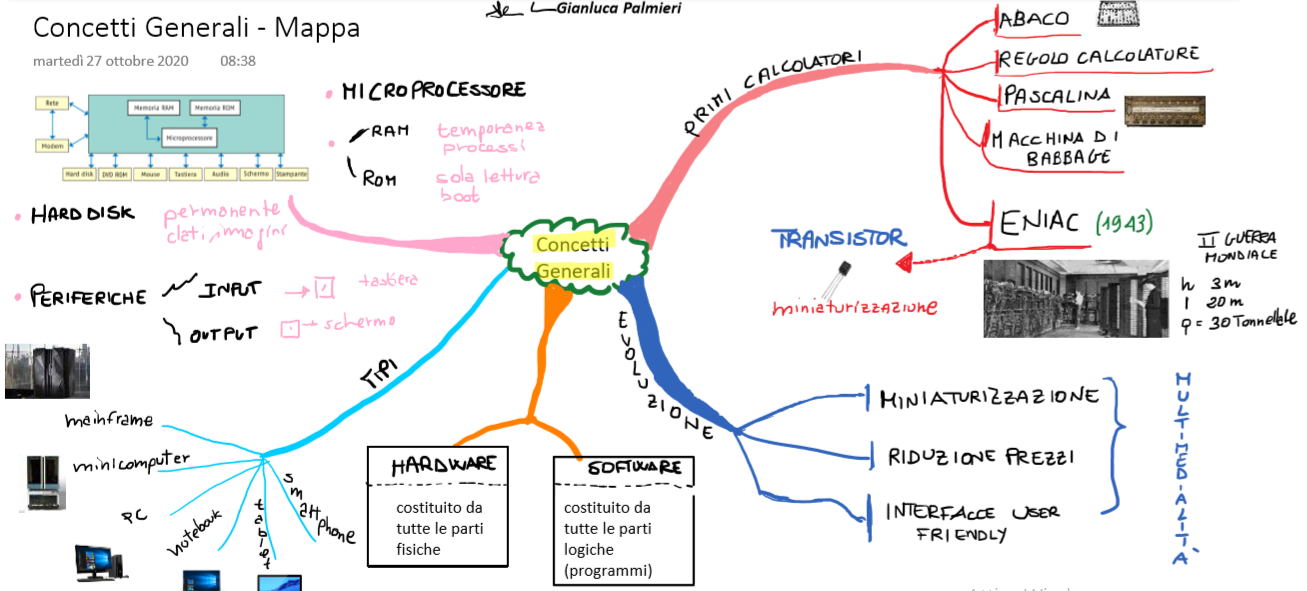 Gianluca Palmieri
Concetti Generali - Mappa
martedì 27 ottobre 2020 08:38
Rete
Modem
Memoria RAM
Memoria ROM
Microprocessore
Hard disk
DVD ROM
Mouse
Tastiera
Audio
Schermo
Stampante
• MICROPROCESSORE
• RAM
temporanea
processi
ROM
sola lettura
boot
• HARD DISK
permanente
dati, imagini
• PERIFERICHE
INPUT
tastiera
OUTPUT
schermo
Concetti
Generali
PRIMI CALCOLATORI
ABACO
REGOLO CALCOLATURE
PASCALINA
MACCHINA DI
BABBAGE
ENIAC (1943)
II GUERRA
MONDIALE
h 3m
l 20m
p = 30 Tonnellate
TRANSISTOR
miniaturizzazione
EVOLUZIONE
MINIATURIZZAZIONE
RIDUZIONE PREZZI
INTERFACCE USER
FRIENDLY
MULTIMEDIALITÀ
TIPI
mainframe
minicomputer
PC
notebook
tablet
smartphone
HARDWARE
costituito da
tutte le parti
fisiche
SOFTWARE
costituito da
tutte le parti
logiche
(programmi)